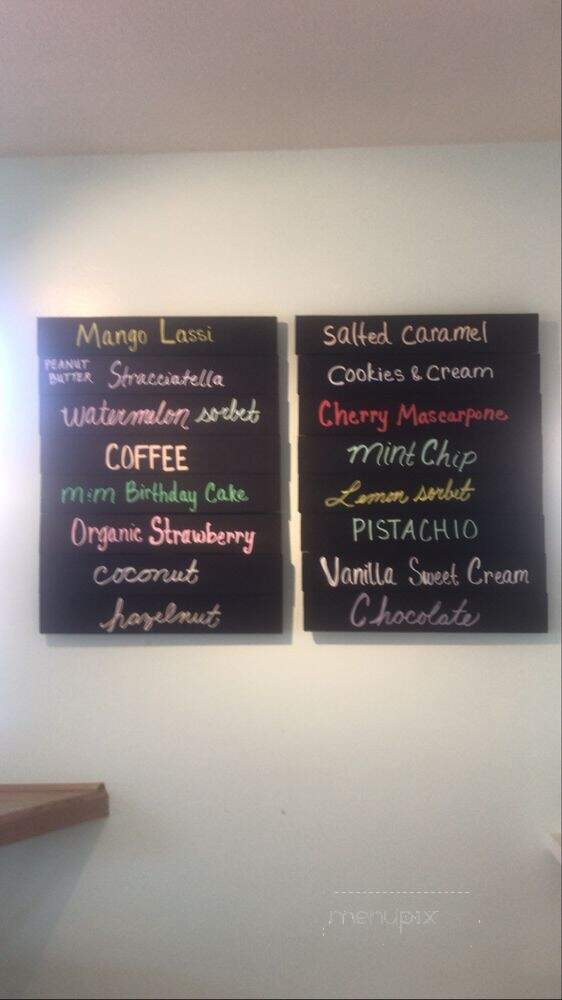 Mango Lassi
PEANUT
BUTTER Stracciatella
watermelon sorbet
COFFEE
m:m Birthday Cake
Organic Strawberry
coconut
hazelnut
salted caramel
Cookies & Cream
Cherry Mascarpone
mint Chip
Lemon sorbet
PISTACHIO
Vanilla Sweet Cream
Chocolate
menupix